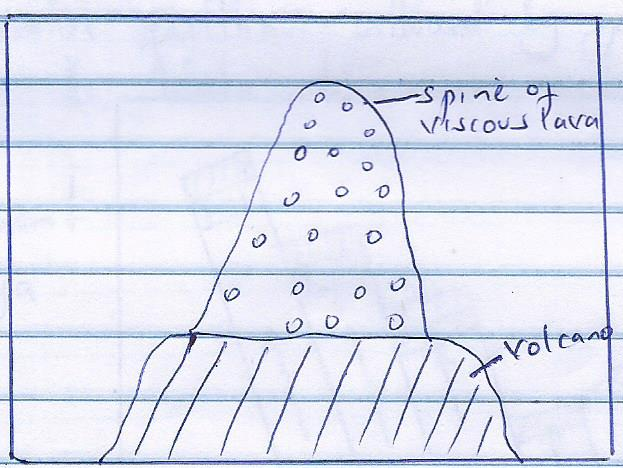 spine of
viscous lava
volcano